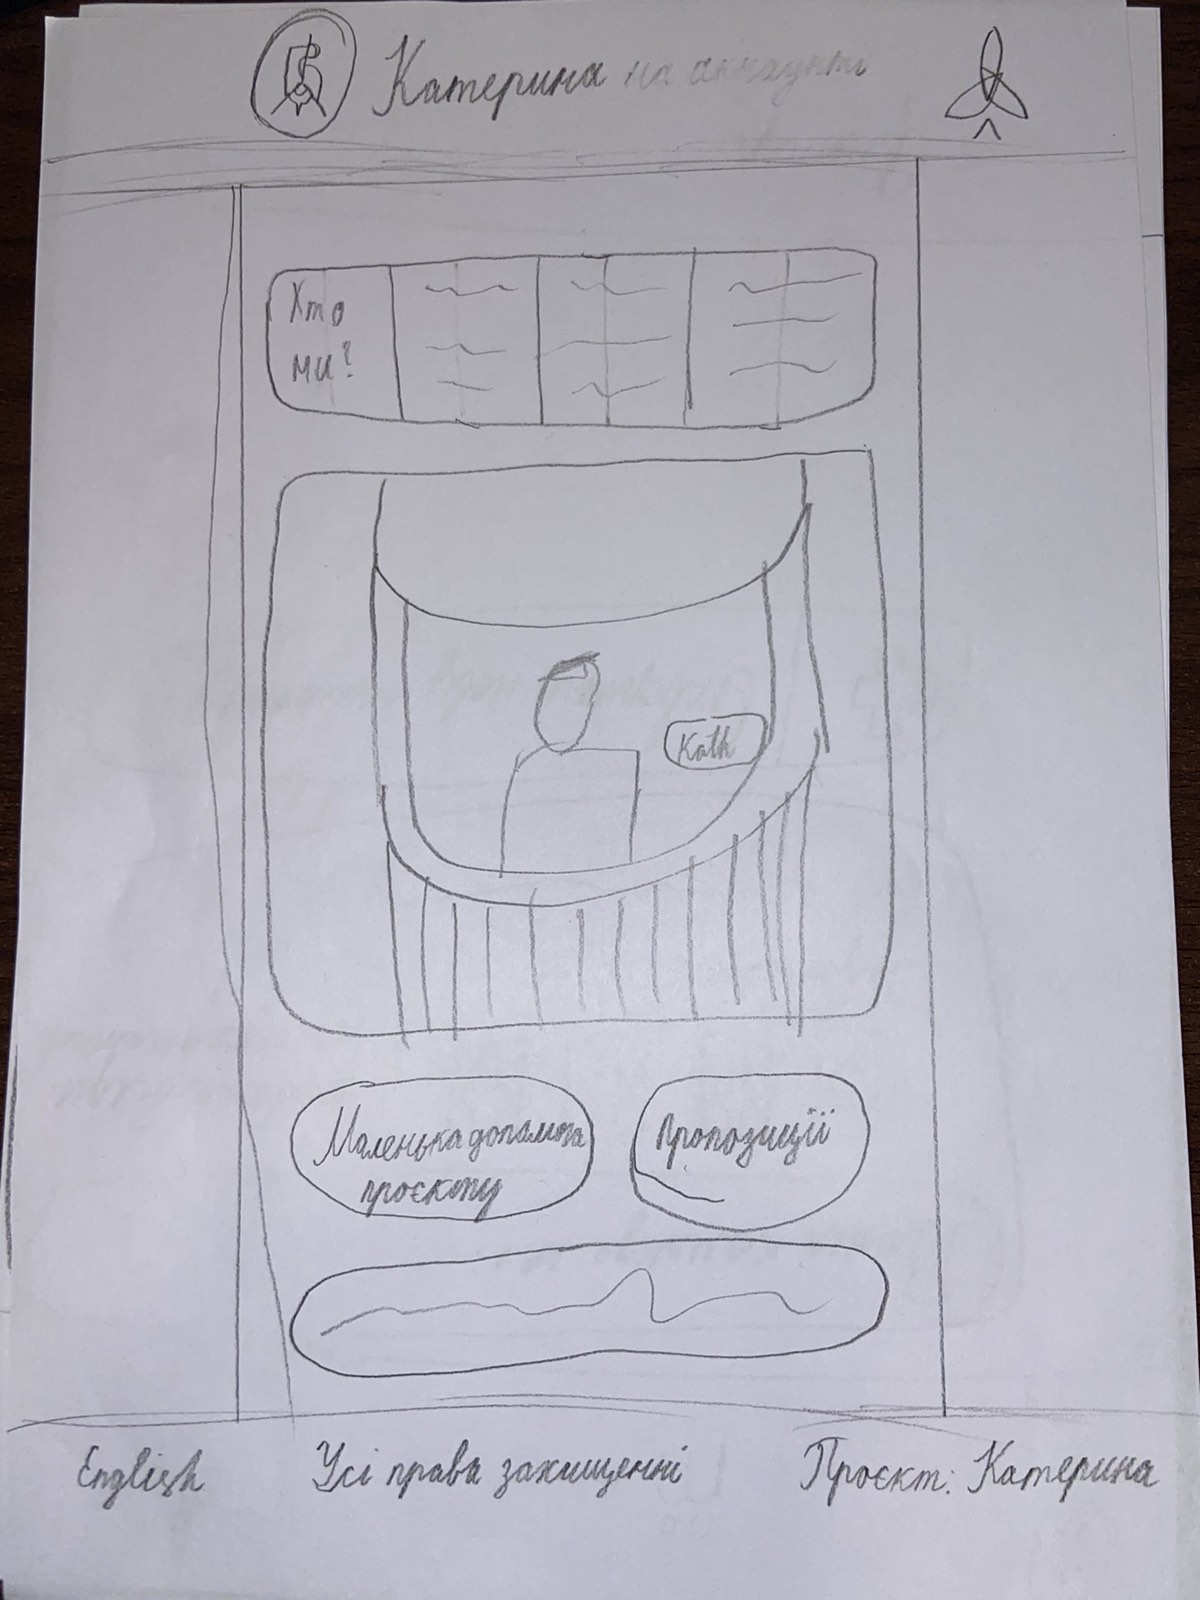 Катерина на аккаунті
Хто
ми?
Kath
Маленька допомога
проєкту
Пропозиції
English
Усі права захищенні
Проєкт: Катерина